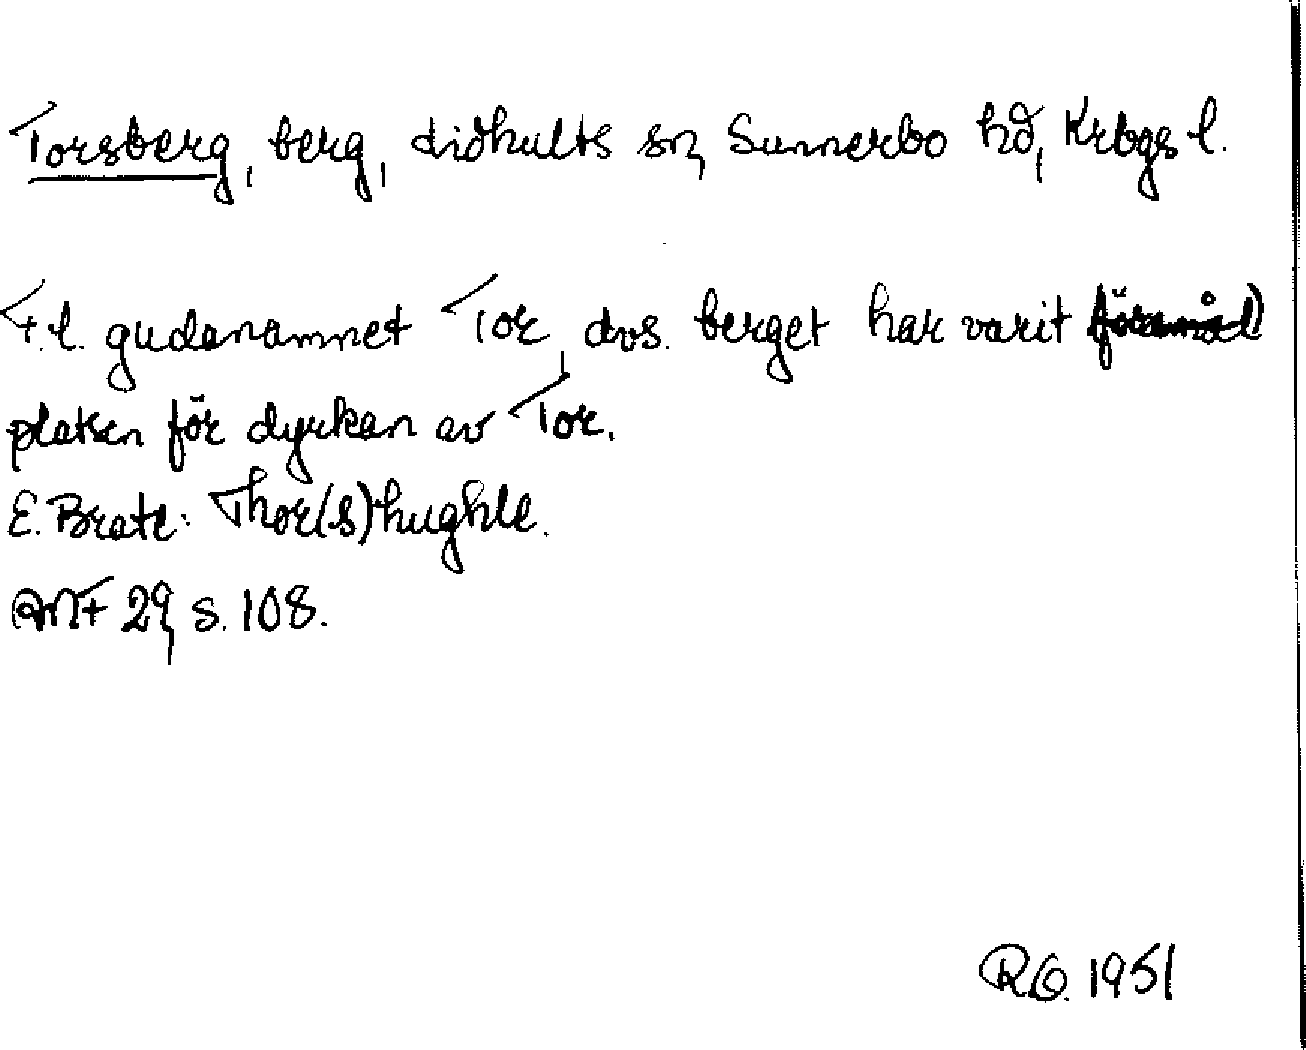 Torsberg, berg, Lidhults sn, Sunnerbo hd, Krbgs l.
T.l. gudanamnet Tor, dvs. berget har varit föremål
platsen för dyrkan av Tor.
E. Brate: Thor(s)hughle.
ANF 29, s. 108.
RO. 1951